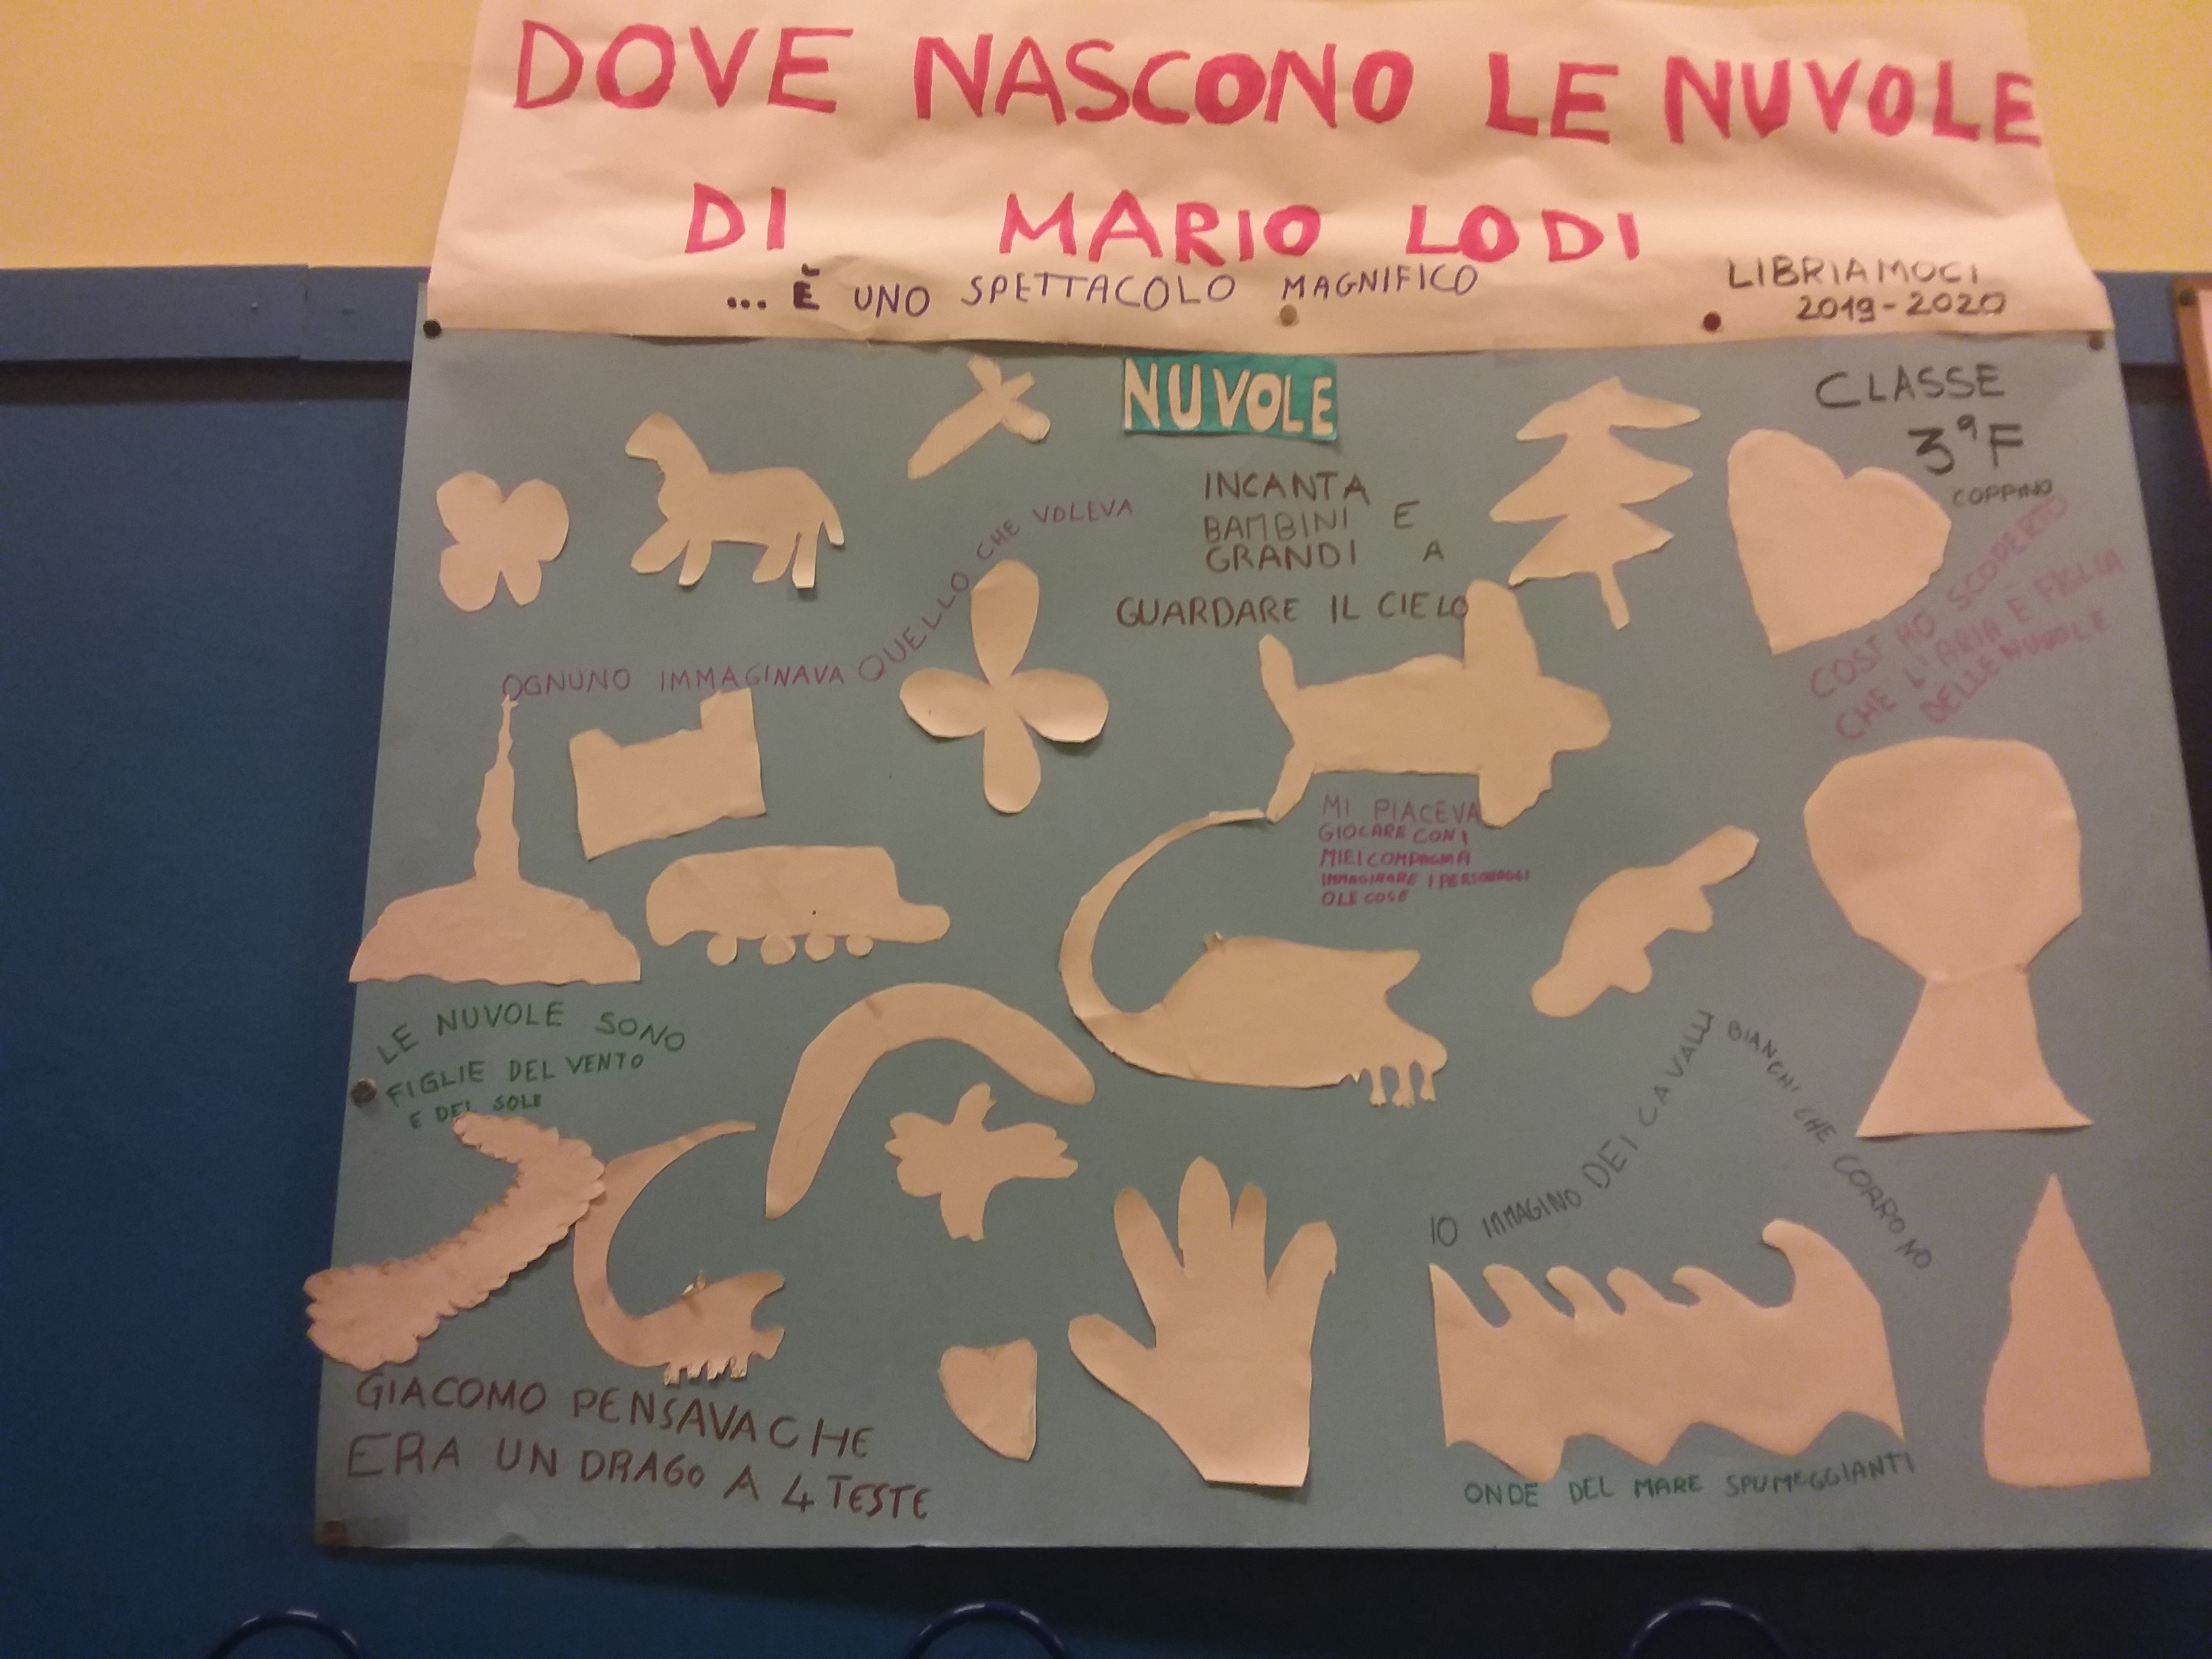 DOVE NASCONO LE NUVOLE
DI MARIO LODI
... È UNO SPETTACOLO MAGNIFICO
LIBRIAMOCI
2019-2020
NUVOLE
CLASSE
3ª F
COPPINO
INCANTA
BAMBINI E
GRANDI A
GUARDARE IL CIELO
OGNUNO IMMAGINAVA QUELLO CHE VOLEVA
COSÌ HO SCOPERTO
CHE L'ARIA È FIGLIA
DELLE NUVOLE
MI PIACEVA
GIOCARE CON I
MIEI COMPAGNI A
IMMAGINARE I PERSONAGGI
O LE COSE
LE NUVOLE SONO
FIGLIE DEL VENTO
E DEL SOLE
IO IMMAGINO DEI CAVALLI BIANCHI CHE CORRONO
GIACOMO PENSAVA CHE
ERA UN DRAGO A 4 TESTE
ONDE DEL MARE SPUMEGGIANTI